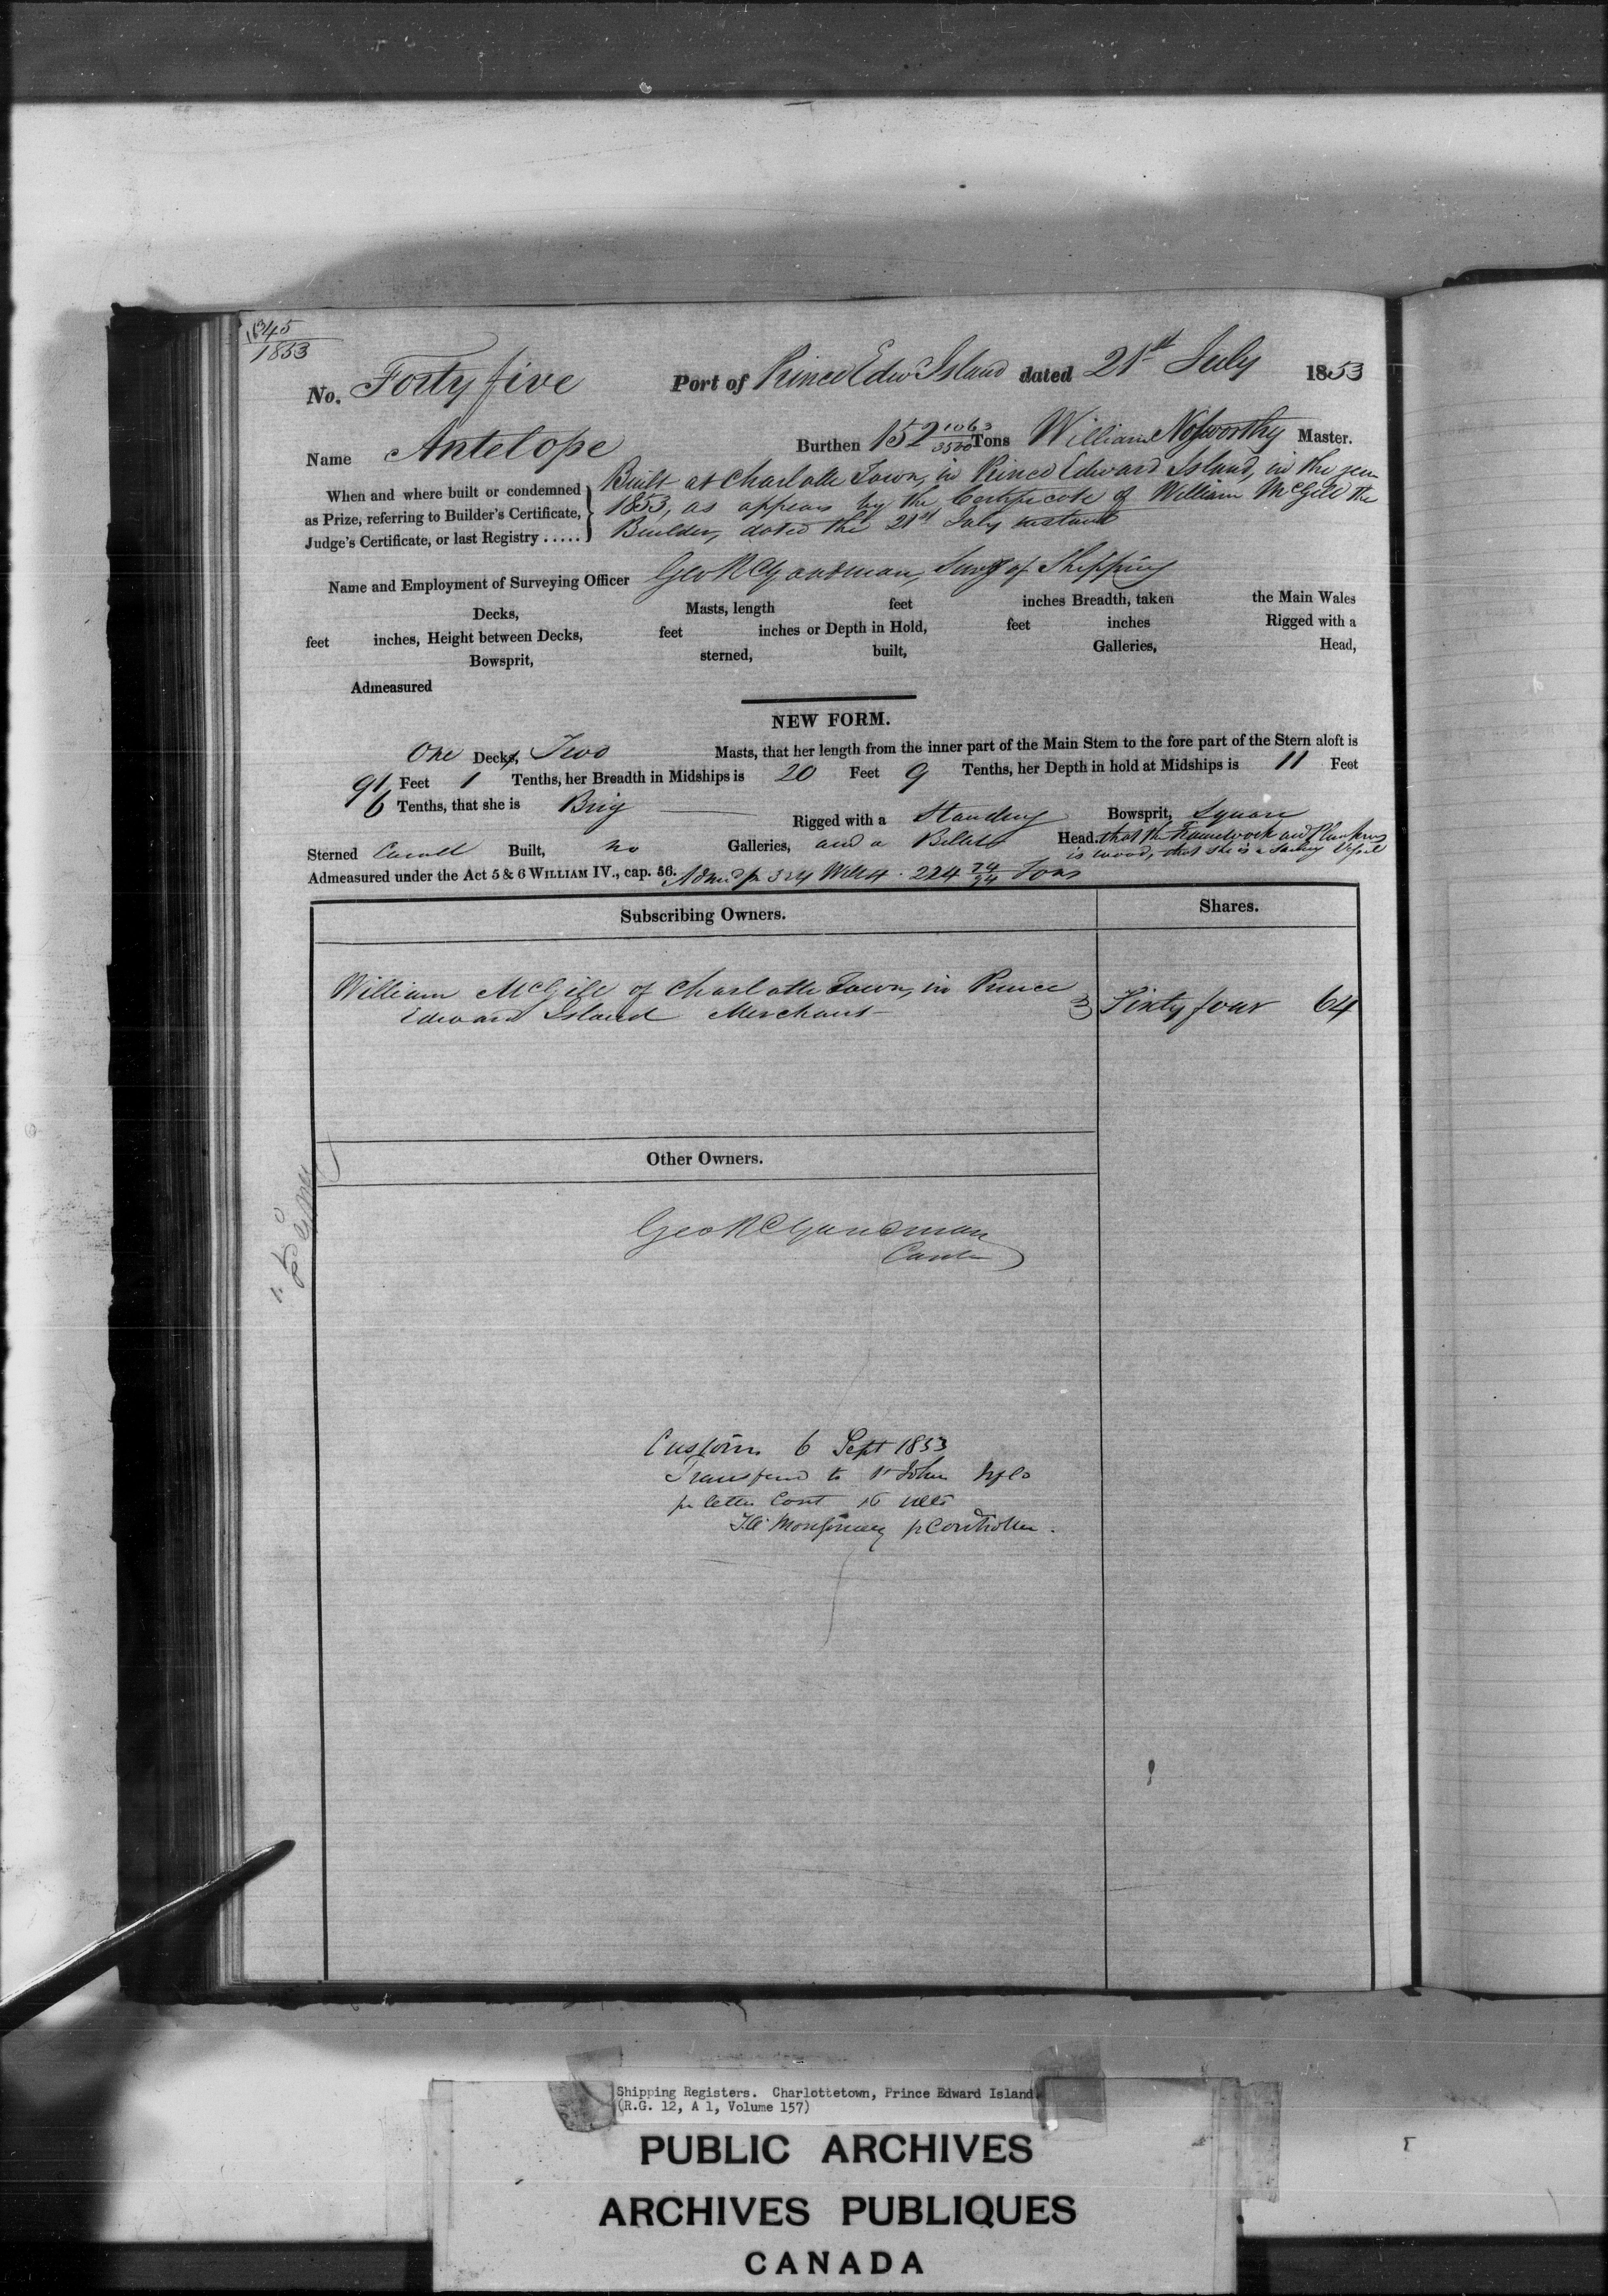 45
1853
No. Forty five Port of Prince Edw Island dated 21st July 1853
Name Antelope Burthen 152 1063/3500 Tons William Nosworthy Master.
When and where built or condemned as Prize, referring to Builder's Certificate, Judge's Certificate, or last Registry .....
Built at Charlotte Town, in Prince Edward Island, in the year
1853, as appears by the Certificate of William McGill the
Builder, dated the 21st July instant
Name and Employment of Surveying Officer Geo R Goodman, Survr of Shipping
Decks, Masts, length feet inches Breadth, taken the Main Wales
feet inches, Height between Decks, feet inches or Depth in Hold, feet inches Rigged with a
Bowsprit, sterned, built, Galleries, Head,
Admeasured
NEW FORM.
One Decks, Two Masts, that her length from the inner part of the Main Stem to the fore part of the Stern aloft is
91 Feet 1 Tenths, her Breadth in Midships is 20 Feet 9 Tenths, her Depth in hold at Midships is 11 Feet
6 Tenths, that she is Brig Rigged with a Standing Bowsprit, Square
Sterned Carvel Built, no Galleries, and a Billet Head. that the Framework and Planking
is wood, that she is a Sailing Vessel
Admeasured under the Act 5 & 6 WILLIAM IV., cap. 56. Adm'd pr 3 & 4 Will 4. 224 74/94 Tons
Subscribing Owners. Shares.
William McGill of Charlotte Town, in Prince
Edward Island Merchant Sixty four 64
Other Owners.
Geo R Goodman
Contr
Customs 6 Sept 1853
Transferred to St John Nfld
pr letter Cont 16 ulto
Montgomery p Controller.
Shipping Registers. Charlottetown, Prince Edward Island
(R.G. 12, A 1, Volume 157)
PUBLIC ARCHIVES
ARCHIVES PUBLIQUES
CANADA